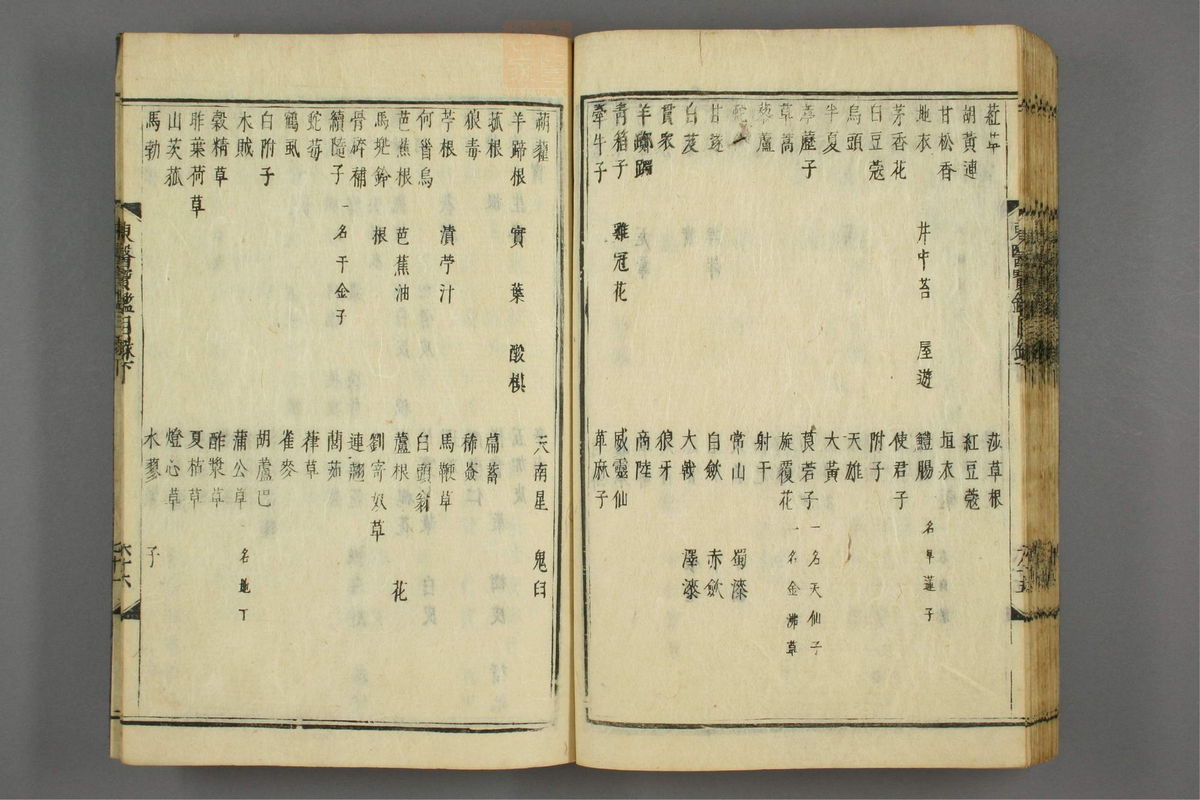 葒草 莎草根
胡黃連 紅豆蔻
甘松香 垣衣
地衣 井中苔 屋遊 鱧腸 名旱蓮子
茅香花 使君子
白豆蔻 附子
烏頭 天雄
半夏 大黃
葶藶子 莨菪子 一名天仙子
草蒿 旋覆花 一名金沸草
藜蘆 射干
常山 蜀漆
甘遂 白斂 赤斂
白芨 大戟 澤漆
貫衆 狼牙
羊躑躅 商陸
青箱子 雞冠花 威靈仙
牽牛子 萆麻子
蒴藋 天南星 鬼臼
羊蹄根 實 葉 酸模
菰根 萹蓄
狼毒 狶薟
苧根 漬苧汁 馬鞭草
何首烏 白頭翁
芭蕉根 芭蕉油 蘆根 花
馬兜鈴 根 劉寄奴草
骨碎補 連翹
續隨子 一名千金子 䕡茹
蛇莓 葎草
鶴虱 雀麥
白附子 胡蘆巴
木賊 蒲公草 一名地丁
穀精草 酢漿草
昨葉荷草 夏枯草
山茨菰 燈心草
馬勃 水蓼 子
東醫寶鑑目錄下 六十六